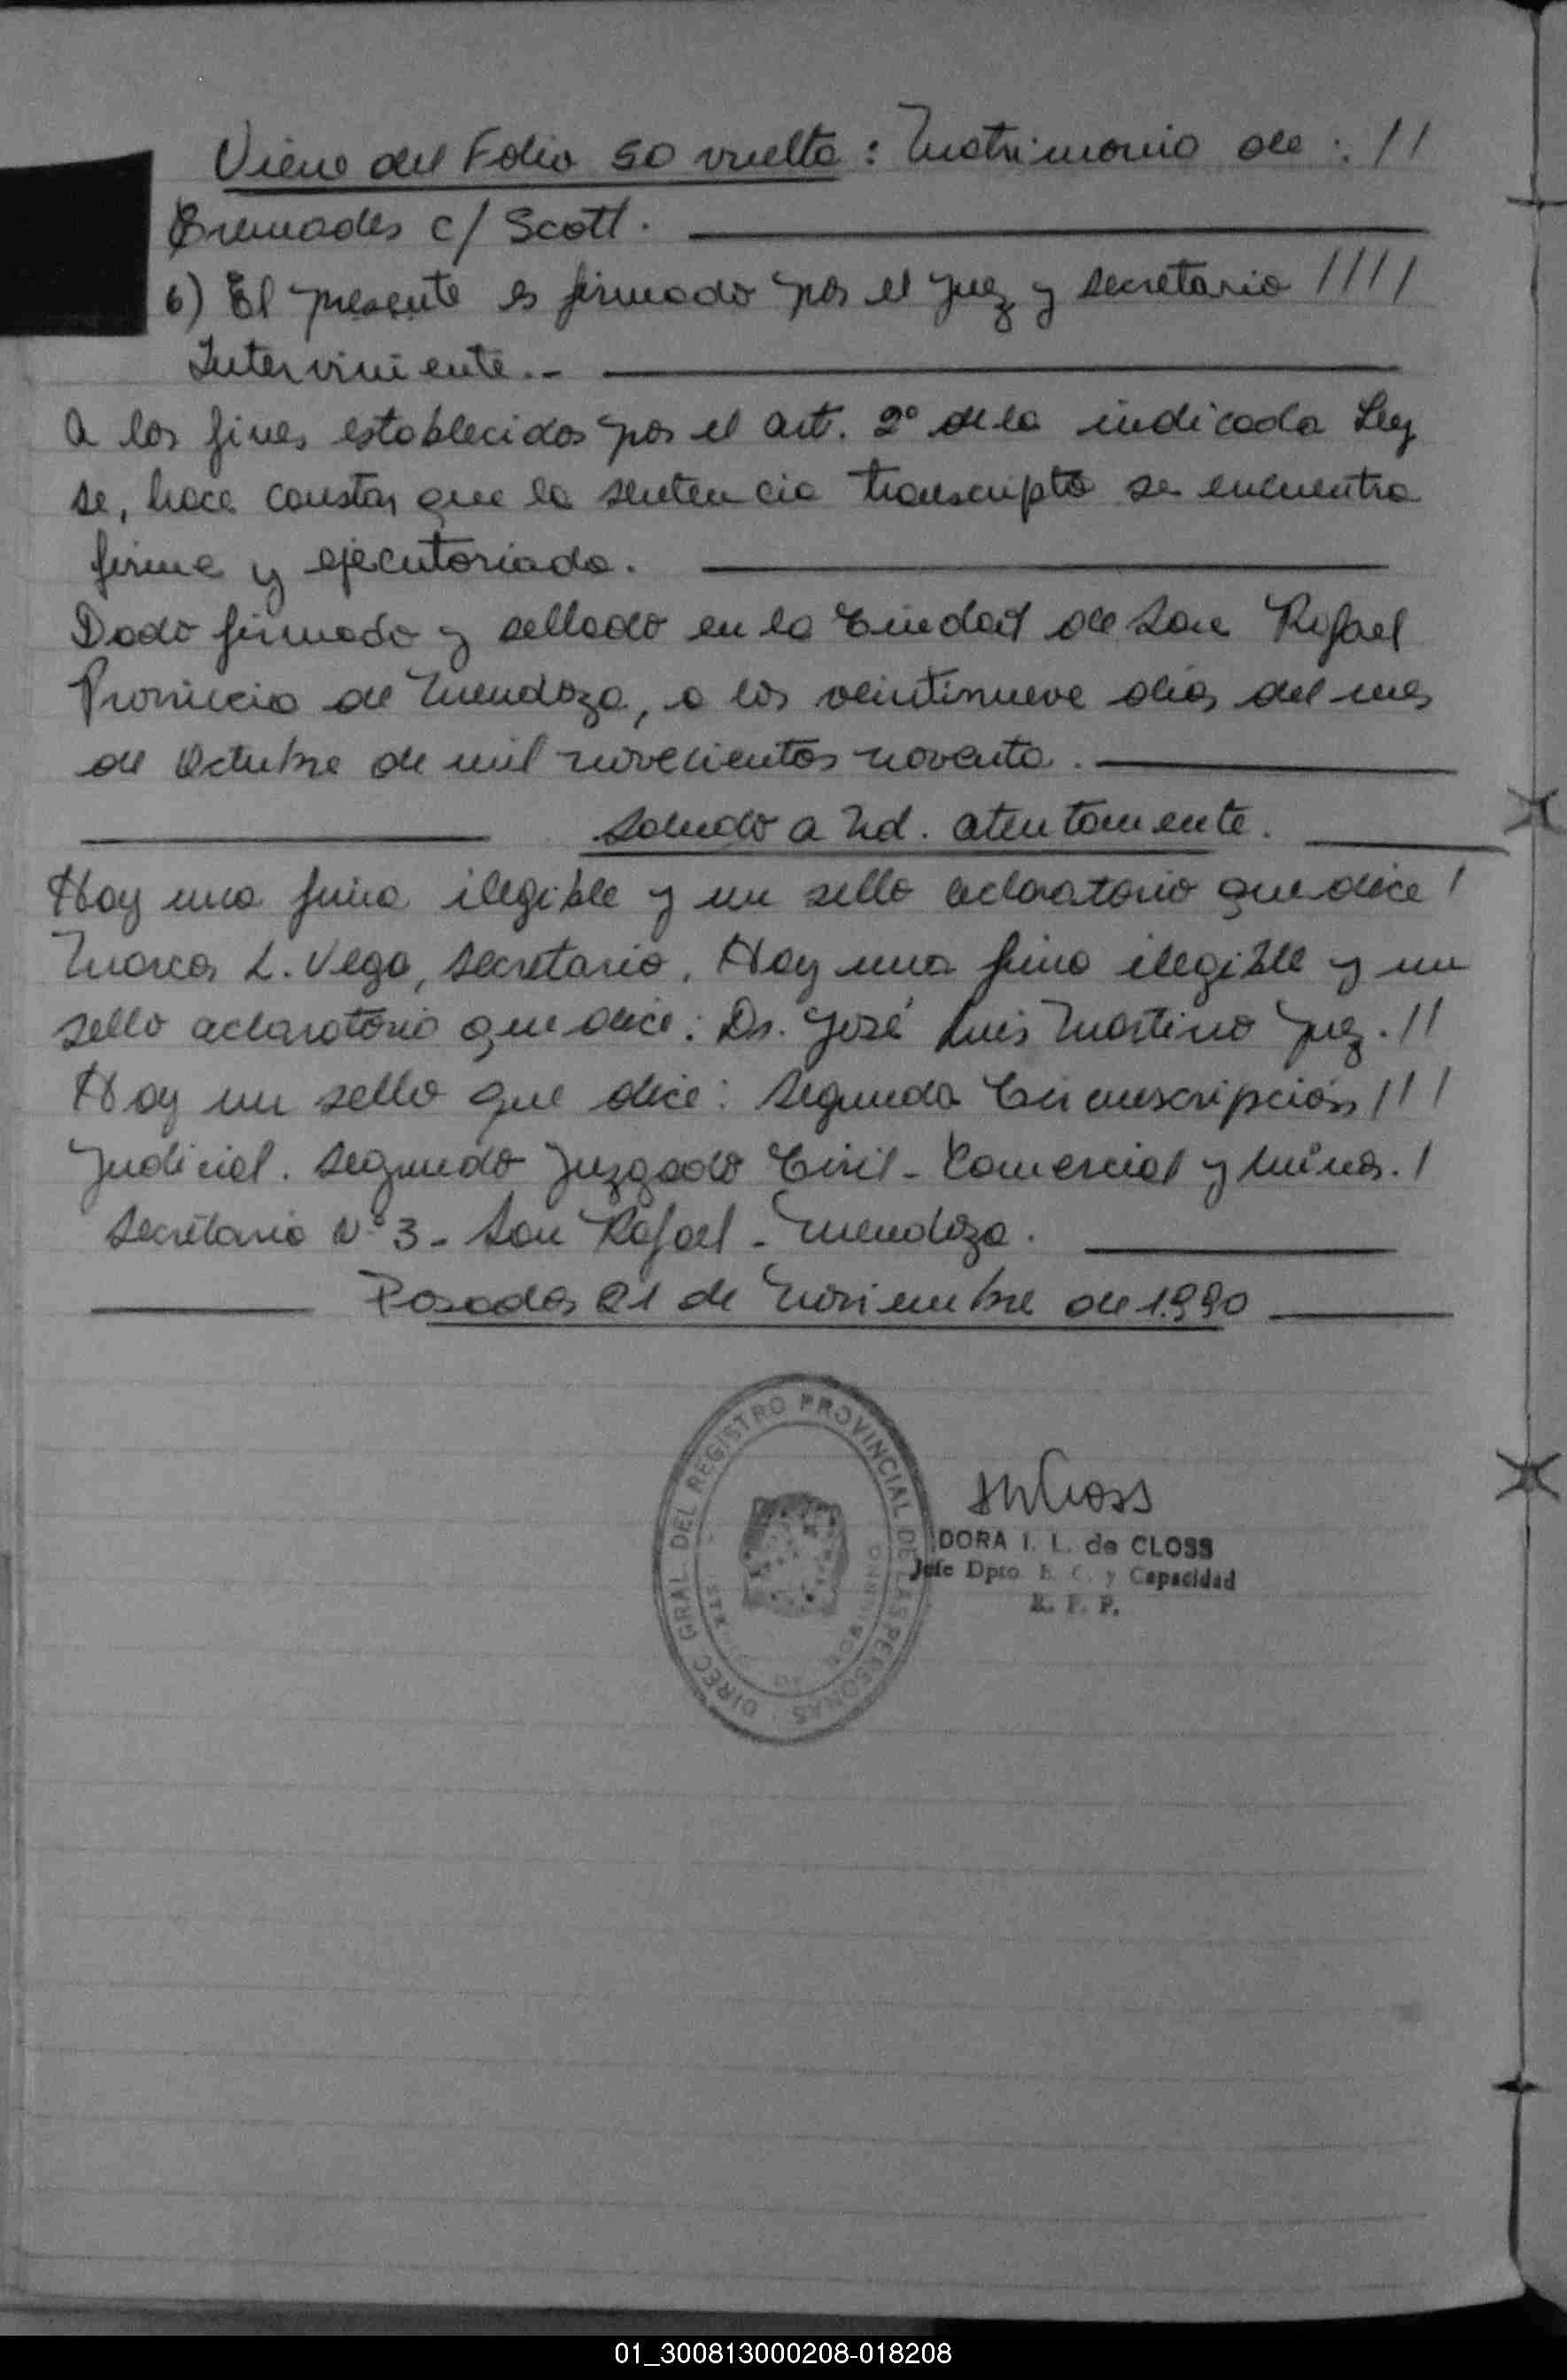 Viene del Folio 50 vuelta: Matrimonio de: //
c/ Scott.
6) El presente es firmado por el Juez y secretario ////
Interviniente.-
A los fines establecidos por el art. 2° de la indicada Ley
se, hace constar que la sentencia transcripta se encuentra
firme y ejecutoriada.
Dado firmado y sellado en la Ciudad de San Rafael
Provincia de Mendoza, a los veintinueve días del mes
de Octubre de mil novecientos noventa.
Saludo a Ud. atentamente.
Hay una firma ilegible y un sello aclaratorio que dice /
Marcos L. Vega, secretario. Hay una firma ilegible y un
sello aclaratorio que dice: Dr. José Luis Martino Juez. //
Hay un sello que dice: Segunda Circunscripción ///
Judicial. Segundo Juzgado Civil - Comercial y Minas. /
Secretaria N°3 - San Rafael - Mendoza.
Posadas 21 de Noviembre de 1.990
DIREC GRAL DEL REGISTRO PROVINCIAL DE LAS PERSONAS
DORA I. L. de CLOSS
Jefe Dpto E. C. y Capacidad
R. P. P.
01_300813000208-018208